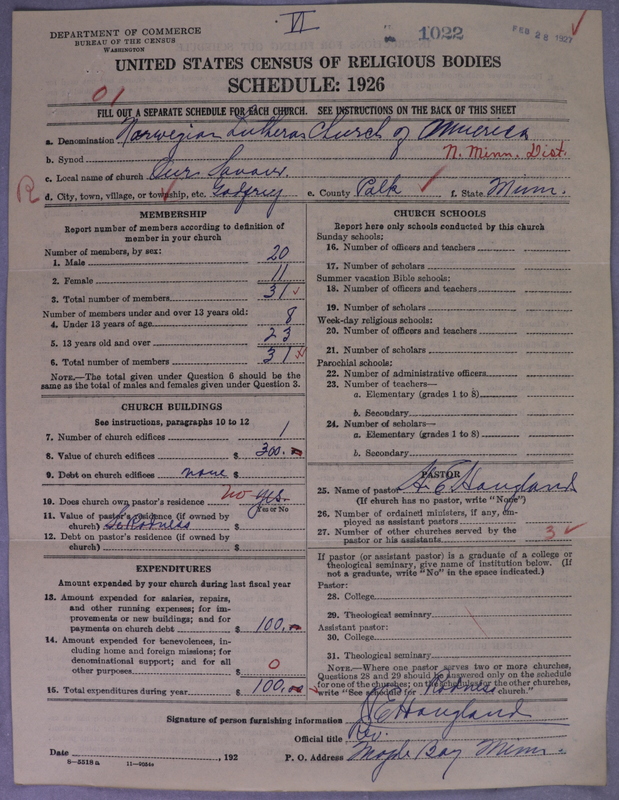 VI
DEPARTMENT OF COMMERCE
BUREAU OF THE CENSUS
WASHINGTON
1022
FEB 28 1927
UNITED STATES CENSUS OF RELIGIOUS BODIES
SCHEDULE: 1926
01
FILL OUT A SEPARATE SCHEDULE FOR EACH CHURCH. SEE INSTRUCTIONS ON THE BACK OF THIS SHEET
a. Denomination Norwegian Lutheran Church of America
b. Synod N. Minn. Dist.
c. Local name of church Our Saviour
R d. City, town, village, or township, etc. Godfrey e. County Polk f. State Minn.
MEMBERSHIP
Report number of members according to definition of
member in your church
Number of members, by sex:
1. Male 20
2. Female 11
3. Total number of members 31
Number of members under and over 13 years old:
4. Under 13 years of age 8
5. 13 years old and over 23
6. Total number of members 31
NOTE.—The total given under Question 6 should be
same as the total of males and females given under Question 3.
CHURCH BUILDINGS
See instructions, paragraphs 10 to 12
7. Number of church edifices 1
8. Value of church edifices $ 300.
9. Debt on church edifices none $
10. Does church own pastor's residence no yes
Yes or No
11. Value of pastor's residence (if owned by
church) $
12. Debt on pastor's residence (if owned by
church) $
EXPENDITURES
Amount expended by your church during last fiscal year
13. Amount expended for salaries, repairs,
and other running expenses; for im-
provements or new buildings; and for
payments on church debt $ 100.
14. Amount expended for benevolences, in-
cluding home and foreign missions; for
denominational support; and for all
other purposes $ 0
15. Total expenditures during year $ 100.00
CHURCH SCHOOLS
Report here only schools conducted by this church
Sunday schools:
16. Number of officers and teachers
17. Number of scholars
Summer vacation Bible schools:
18. Number of officers and teachers
19. Number of scholars
Week-day religious schools:
20. Number of officers and teachers
21. Number of scholars
Parochial schools:
22. Number of administrative officers
23. Number of teachers—
a. Elementary (grades 1 to 8)
b. Secondary
24. Number of scholars—
a. Elementary (grades 1 to 8)
b. Secondary
PASTOR
25. Name of pastor A E Hougland
(If church has no pastor, write "None")
26. Number of ordained ministers, if any, em-
ployed as assistant pastors
27. Number of other churches served by the
pastor or his assistants 3
If pastor (or assistant pastor) is a graduate of a college or
theological seminary, give name of institution below. (If
not a graduate, write "No" in the space indicated.)
Pastor:
28. College
29. Theological seminary
Assistant pastor:
30. College
31. Theological seminary
NOTE.—Where one pastor serves two or more churches,
Questions 28 and 29 should be answered only on the schedule
for one of the churches; on the schedules for the other churches,
write "See schedule for Rodness church."
Signature of person furnishing information A E Hougland
Official title Rev.
Date , 192 P. O. Address Maple Bay Minn.
8-5518 a 11-9034